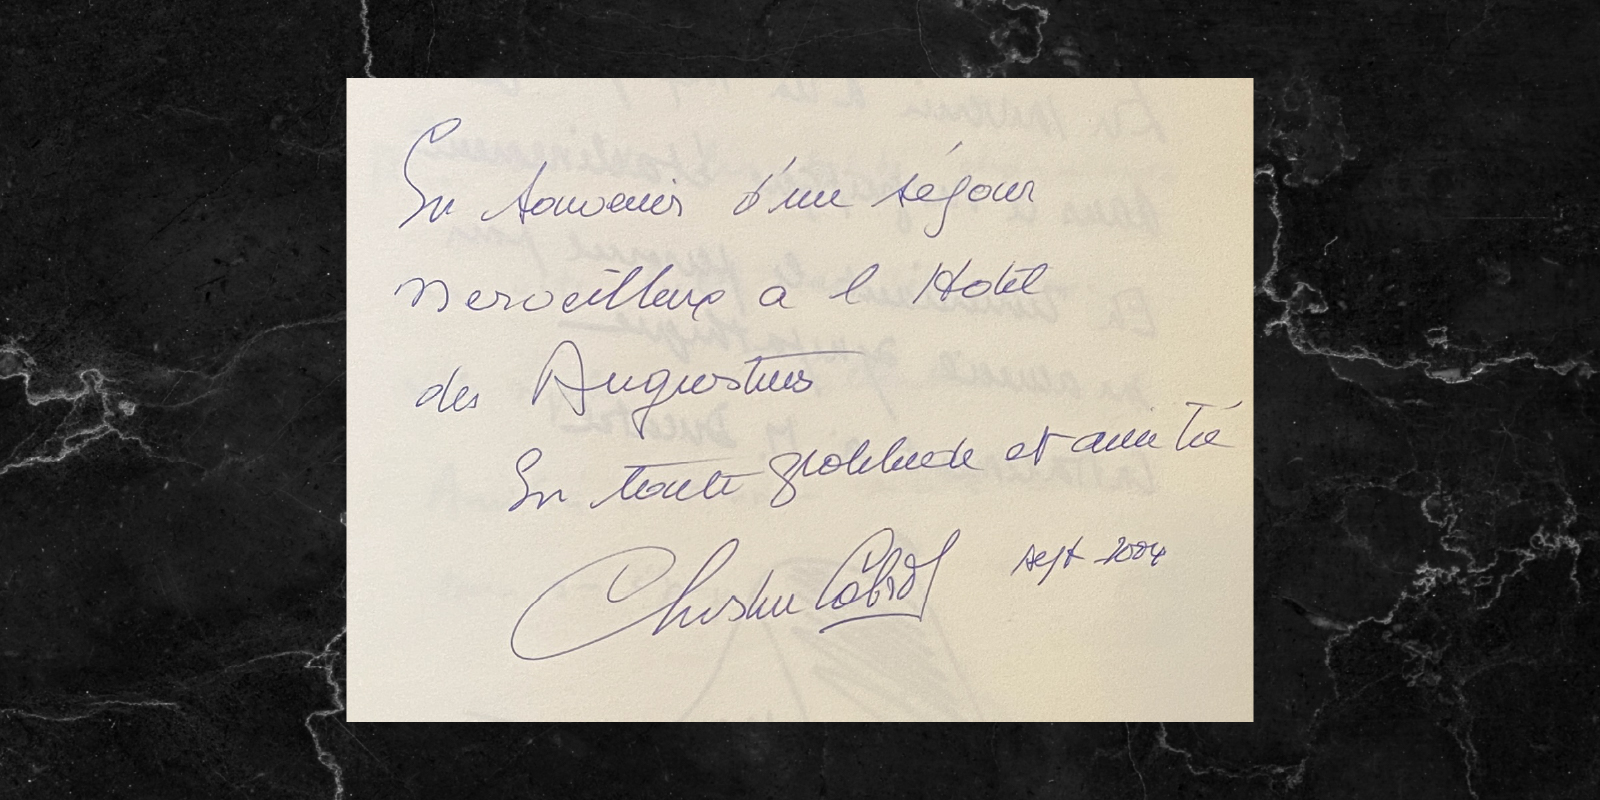 En souvenir d'un séjour
merveilleux a l Hotel
des Augustins
En toute gratitude et amitié
Christian Cabrol sept 2004